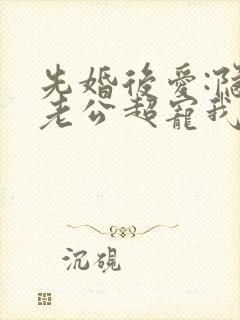 先婚後愛:
老公超寵我
沉硯